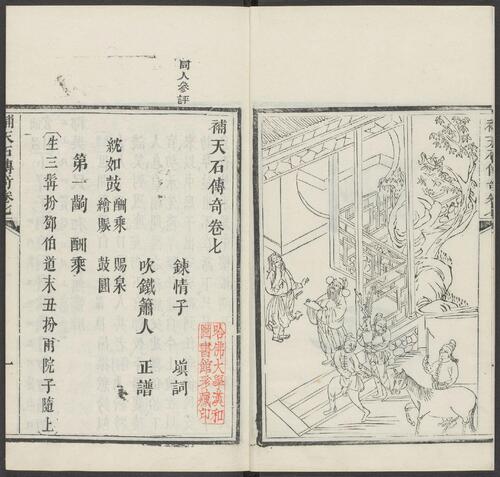 補天石傳奇卷七
同人參評
補天石傳奇卷七
鍊情子 塡詞
吹鐵簫人 正譜
哈佛大學漢和
圖書館珍藏印
紞如鼓 酬乘 賜帛
繪賑 鼓圓
第一齣 酬乘
〔生三髯扮鄧伯道末丑扮兩院子隨上〕
補天石傳奇卷七
一